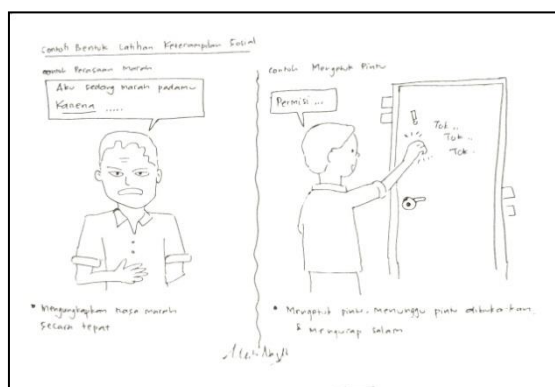 Contoh Bentuk Latihan Keterampilan Sosial
Contoh Perasaan Marah
Aku sedang marah padamu
Karena .....
* Mengungkapkan rasa marah
secara tepat
Contoh Mengetuk Pintu
Permisi ...
Tok ..
Tok ..
Tok ..
* Mengetuk pintu, menunggu pintu dibuka-kan
& Mengucap salam